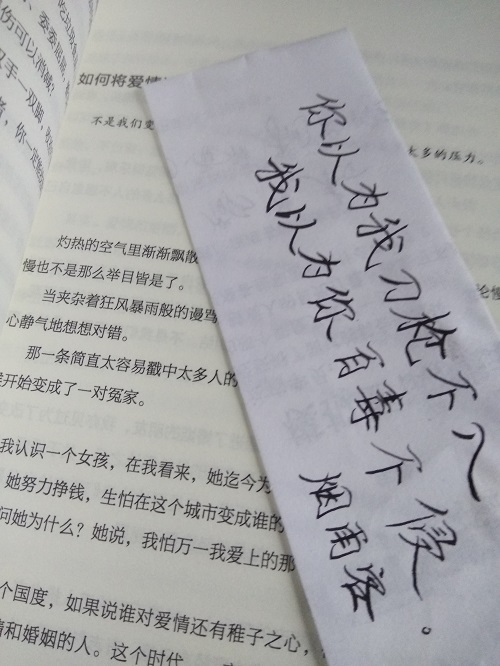 如何将爱情
不是我们变
太多的压力。
灼热的空气里渐渐飘散
慢也不是那么举目皆是了。
当夹杂着狂风暴雨般的谩骂
心静气地想想对错。
那一条简直太容易戳中太多人的
开始变成了一对冤家。
我认识一个女孩，在我看来，她迄今为
她努力挣钱，生怕在这个城市变成谁的
问她为什么？她说，我怕万一我爱上的那
个国度，如果说谁对爱情还有稚子之心，
和婚姻的人。这个时代
你以为我刀枪不入
我以为你百毒不侵。
烟雨客